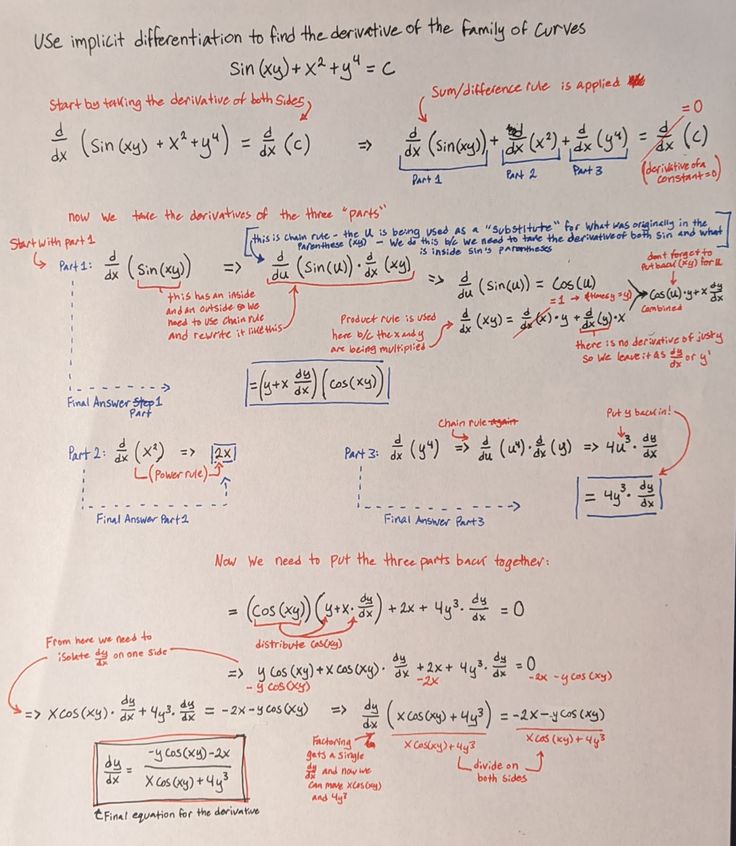 Use implicit differentiation to find the derivative of the family of curves
Sin(xy) + x² + y⁴ = C
Start by taking the derivative of both sides
Sum/difference rule is applied
d/dx (Sin(xy) + x² + y⁴) = d/dx (c) => d/dx (Sin(xy)) + d/dx (x²) + d/dx (y⁴) = d/dx (c) = 0
Part 1 Part 2 Part 3
(derivative of a constant = 0)
now we take the derivatives of the three "parts"
Start with part 1
this is chain rule - the u is being used as a "substitute" for what was originally in the
Parenthese (xy) - We do this b/c we need to take the derivative of both sin and what
is inside sin's parentheses
Part 1: d/dx (Sin(xy)) => d/du (Sin(u)) · d/dx (xy) => d/du (Sin(u)) = Cos(u)
this has an inside
and an outside so we
need to use chain rule
and rewrite it like this
Product rule is used
here b/c the x and y
are being multiplied
d/dx (xy) = d/dx (x) · y + d/dx (y) · x
=1 → (times y = y)
there is no derivative of just y
so we leave it as dy/dx or y'
don't forget to
Put back (xy) for u
Cos(u) · y + x dy/dx
Combined
= (y + x dy/dx)(cos(xy))
Final Answer Step 1
Part
Part 2: d/dx (x²) => 2x
(Power rule)
Final Answer Part 2
Chain rule again
Put y back in!
Part 3: d/dx (y⁴) => d/du (u⁴) · d/dx (y) => 4u³ · dy/dx
= 4y³ · dy/dx
Final Answer Part 3
Now we need to put the three parts back together:
= (Cos(xy))(y + x · dy/dx) + 2x + 4y³ · dy/dx = 0
distribute cos(xy)
From here we need to
isolate dy/dx on one side
=> y cos(xy) + x cos(xy) · dy/dx + 2x + 4y³ · dy/dx = 0
- y cos(xy) -2x -2x - y cos(xy)
=> x cos(xy) · dy/dx + 4y³ · dy/dx = -2x - y cos(xy) => dy/dx (x cos(xy) + 4y³) = -2x - y cos(xy)
x cos(xy) + 4y³ x cos(xy) + 4y³
Factoring
gets a single
dy/dx and now we
can move x cos(xy)
and 4y³
divide on
both sides
dy/dx = (-y cos(xy) - 2x)/(x cos(xy) + 4y³)
Final equation for the derivative